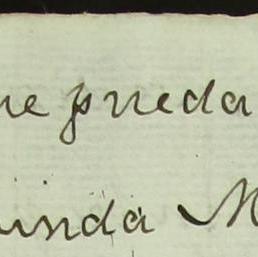 ue pueda
unda M